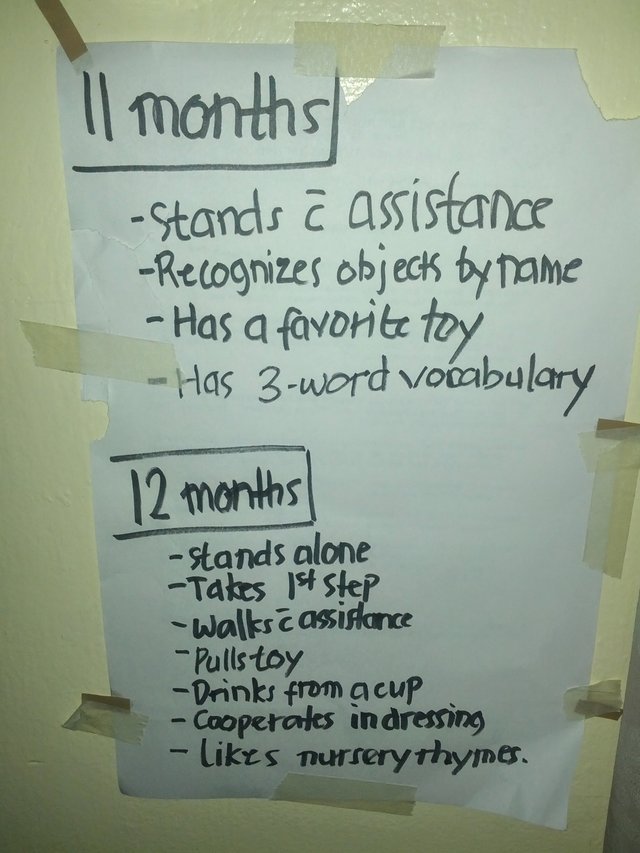 11 months
- Stands c̄ assistance
- Recognizes objects by name
- Has a favorite toy
- Has 3-word vocabulary
12 months
- stands alone
- Takes 1st step
- Walks c̄ assistance
- Pulls toy
- Drinks from a cup
- Cooperates in dressing
- Likes nursery rhymes.